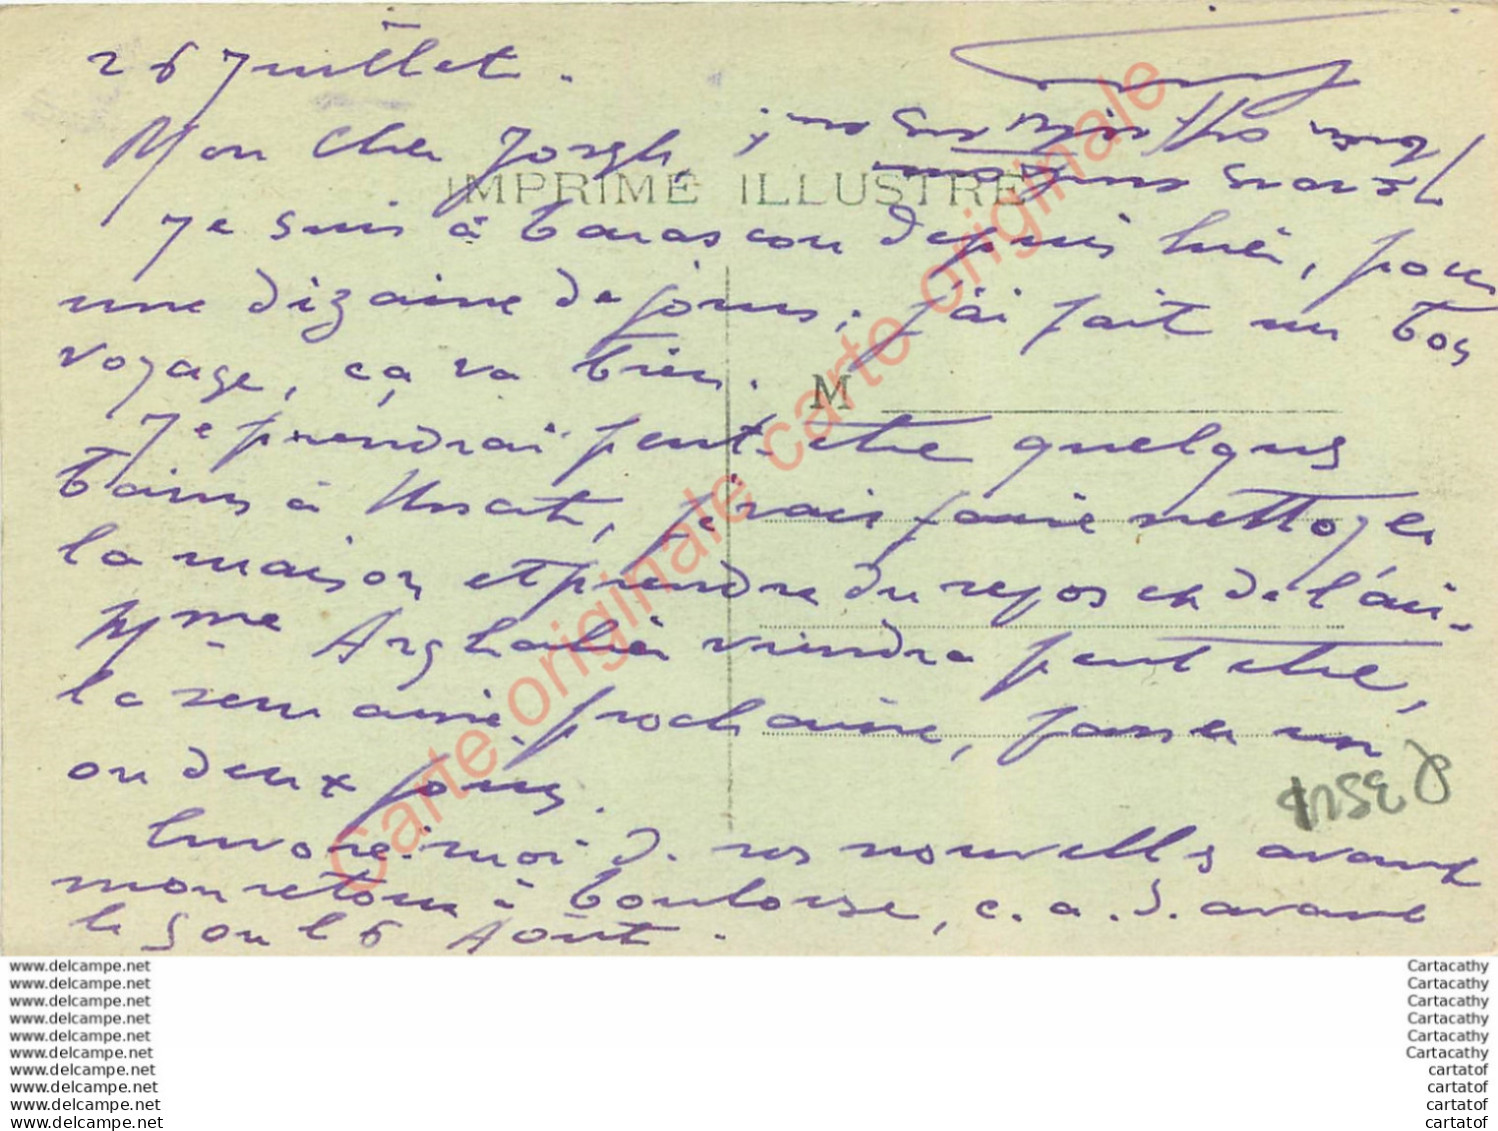 26 Juillet.
Mon cher Joseph,
IMPRIMÉ ILLUSTRÉ
Je suis à Tarascon depuis hier, pour
une dizaine de jours. j'ai fait un bon
voyage, ça va bien.
M
Je prendrai peut-être quelques
bains à Ussat, je vais faire nettoyer
la maison et prendre du repos et de l'air.
Mme viendra peut être,
la semaine prochaine, passer un
ou deux jours.
Envoie-moi d. tes nouvelles avant
mon retour à Toulouse, c.a.d. avant
le 5 ou le 6 Août.
Carte originale carte originale carte originale
www.delcampe.net
www.delcampe.net
www.delcampe.net
www.delcampe.net
www.delcampe.net
www.delcampe.net
www.delcampe.net
www.delcampe.net
www.delcampe.net
www.delcampe.net
Cartacathy
Cartacathy
Cartacathy
Cartacathy
Cartacathy
Cartacathy
cartatof
cartatof
cartatof
cartatof